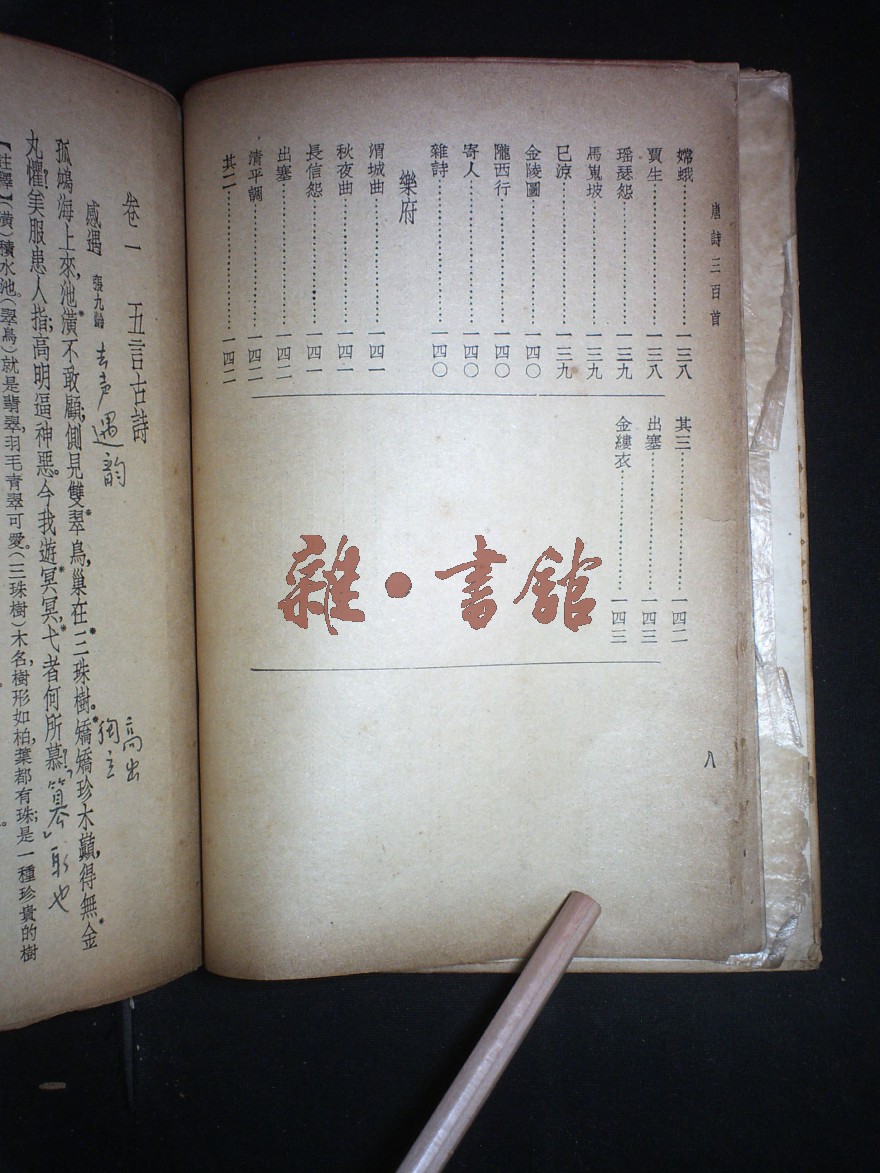 唐詩三百首
嫦娥 一三八
賈生 一三八
瑶瑟怨 一三九
馬嵬坡 一三九
已涼 一三九
金陵圖 一四〇
隴西行 一四〇
寄人 一四〇
雜詩 一四〇
樂府
渭城曲 一四一
秋夜曲 一四一
長信怨 一四一
出塞 一四二
清平調 一四二
其二 一四二
其三 一四二
出塞 一四三
金縷衣 一四三
八
雜·書館
卷一 五言古詩
感遇 張九齡 去声 遇韵
高出
孤鴻海上來,池潢*不敢顧;側見雙翠*鳥,巢在*三珠樹。*矯矯珍木巔,得無*金
丸懼!美服患人指;高明逼神惡。今我遊冥*冥,弋*者何所慕!「篡」取也
【註釋】(潢)積水池。(翠鳥)就是翡翠,羽毛青翠可愛。(三珠樹)木名,樹形如柏,葉都有珠;是一種珍貴的樹